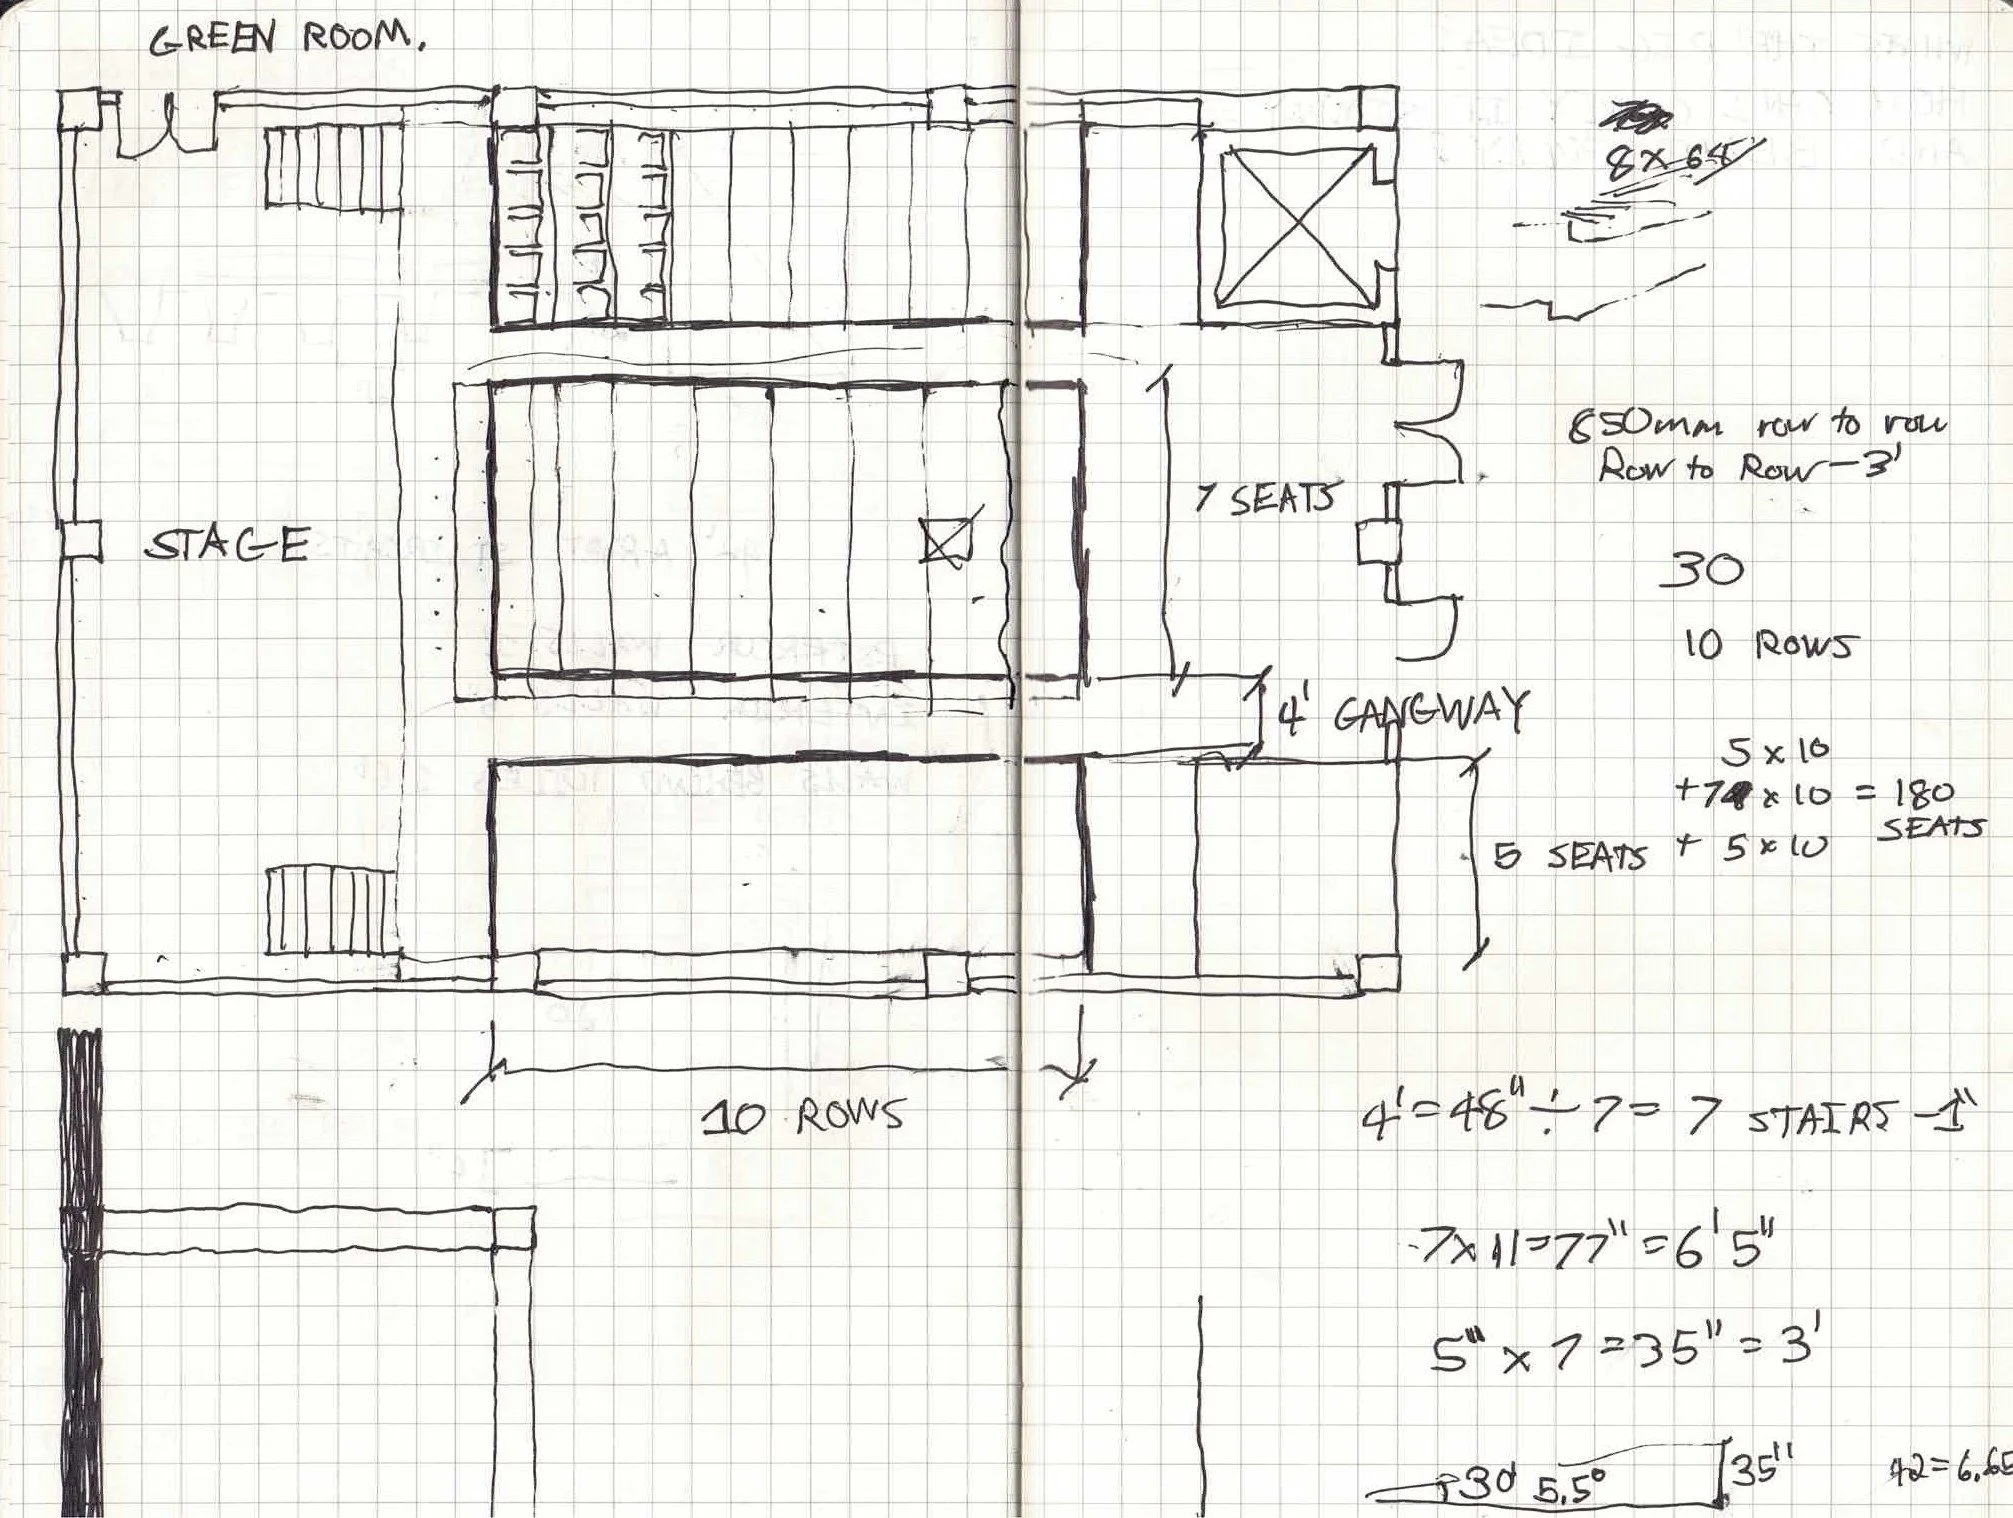 GREEN ROOM.
8 x 64
850mm row to row
Row to Row - 3'
7 SEATS
STAGE
30
10 ROWS
4' GANGWAY
5 x 10
+ 7 x 10 = 180
SEATS
5 SEATS + 5 x 10
10 ROWS
4' = 48" ÷ 7 = 7 STAIRS - 1"
7 x 11 = 77" = 6' 5"
5" x 7 = 35" = 3'
30' 5.5° 35"
42 = 6.65